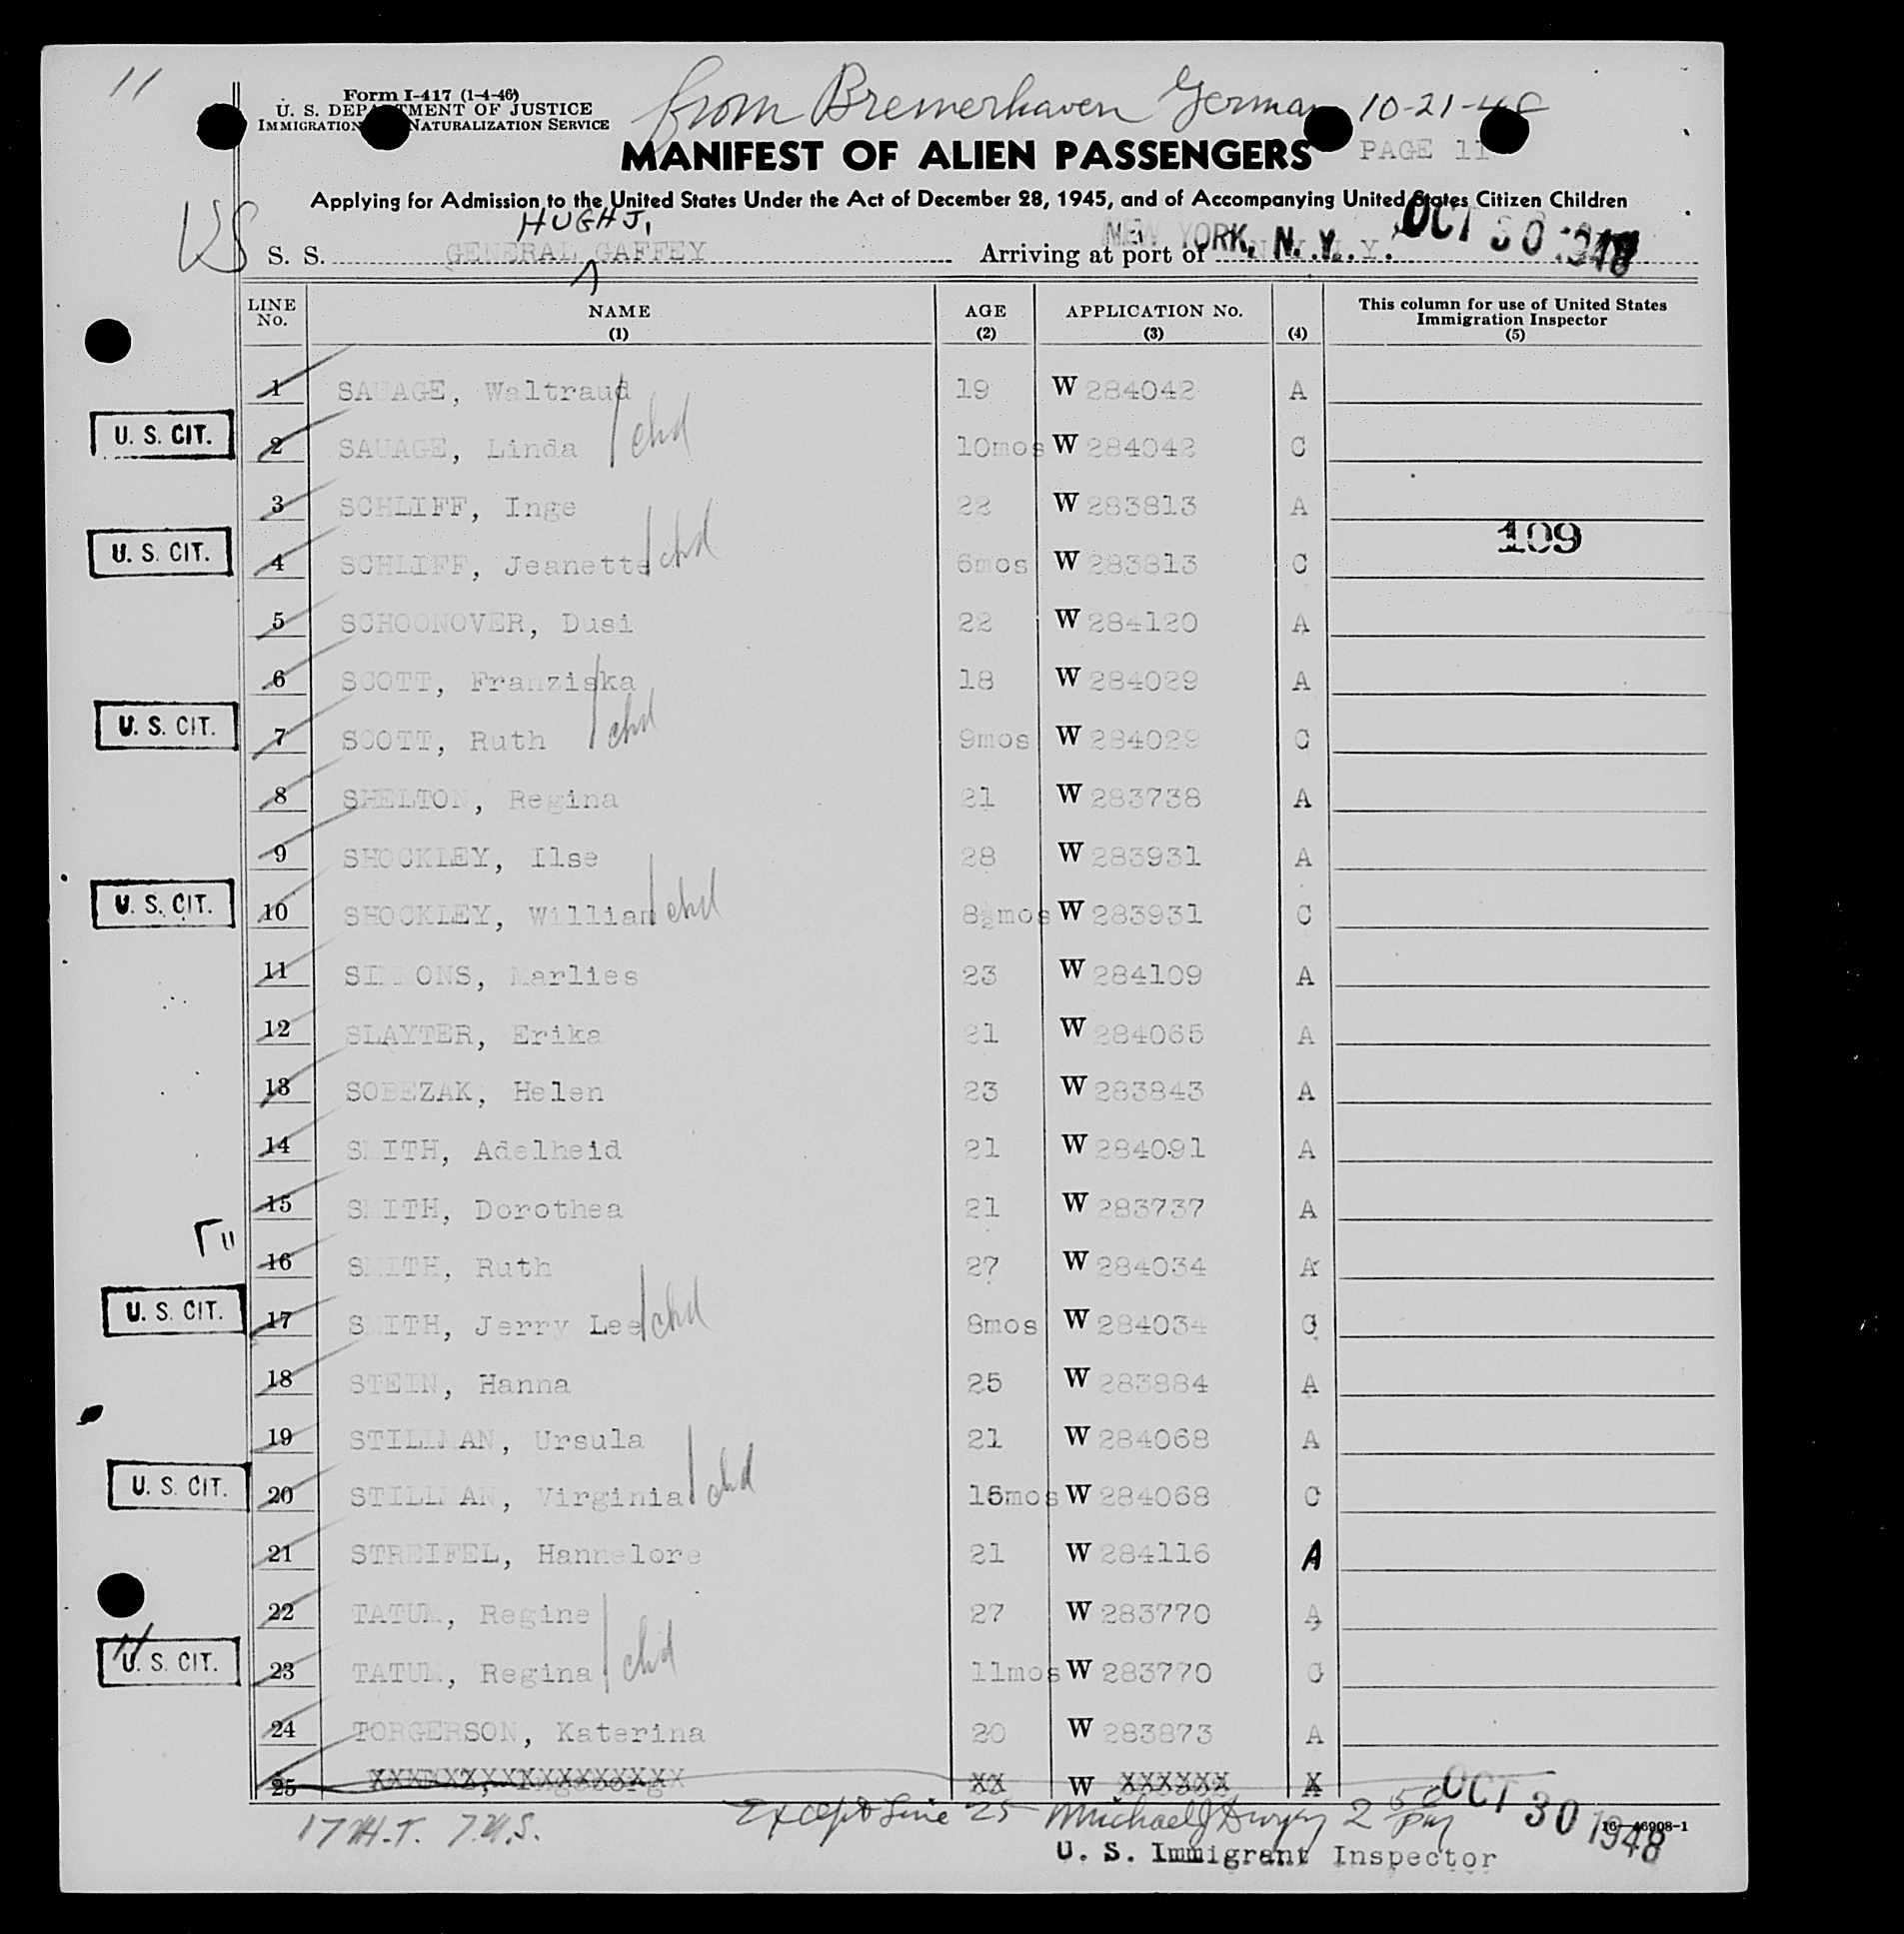 11
Form I-417 (1-4-46)
U. S. DEPARTMENT OF JUSTICE
IMMIGRATION NATURALIZATION SERVICE
from Bremerhaven German 10-21-48
MANIFEST OF ALIEN PASSENGERS PAGE 11
Applying for Admission to the United States Under the Act of December 28, 1945, and of Accompanying United States Citizen Children
HUGH J.
US S. S. GENERAL GAFFEY Arriving at port of NEW YORK, N. Y. OCT 30 1948
LINE No. NAME (1) AGE (2) APPLICATION No. (3) (4) This column for use of United States Immigration Inspector (5)
1 SAUAGE, Waltraud 19 W 284042 A
U. S. CIT. 2 SAUAGE, Linda chd 10mos W 284042 C
3 SCHLIFF, Inge 22 W 283813 A
109
U. S. CIT. 4 SCHLIFF, Jeanette chd 6mos W 283813 C
5 SCHOONOVER, Dusi 22 W 284120 A
6 SCOTT, Franziska 18 W 284029 A
U. S. CIT. 7 SCOTT, Ruth chd 9mos W 284029 C
8 SHELTON, Regina 21 W 283738 A
9 SHOCKLEY, Ilse 28 W 283931 A
U. S. CIT. 10 SHOCKLEY, William chd 8½mos W 283931 C
11 SIMMONS, Marlies 23 W 284109 A
12 SLAYTER, Erika 21 W 284065 A
13 SOBEZAK, Helen 23 W 283843 A
14 SMITH, Adelheid 21 W 284091 A
15 SMITH, Dorothea 21 W 283737 A
16 SMITH, Ruth 27 W 284034 A
U. S. CIT. 17 SMITH, Jerry Lee chd 8mos W 284034 C
18 STEIN, Hanna 25 W 283884 A
19 STILLMAN, Ursula 21 W 284068 A
U. S. CIT. 20 STILLMAN, Virginia chd 16mos W 284068 C
21 STREIFEL, Hannelore 21 W 284116 A
22 TATUM, Regine 27 W 283770 A
11
U. S. CIT. 23 TATUM, Regina chd 11mos W 283770 C
24 TORGERSON, Katerina 20 W 283873 A
25 XX W XXXXXX X
17 H.T. 7 U.S. Except Line 25 Michael J Dwyer 2 50 PM OCT 30 1948
16—46908-1
U. S. Immigrant Inspector